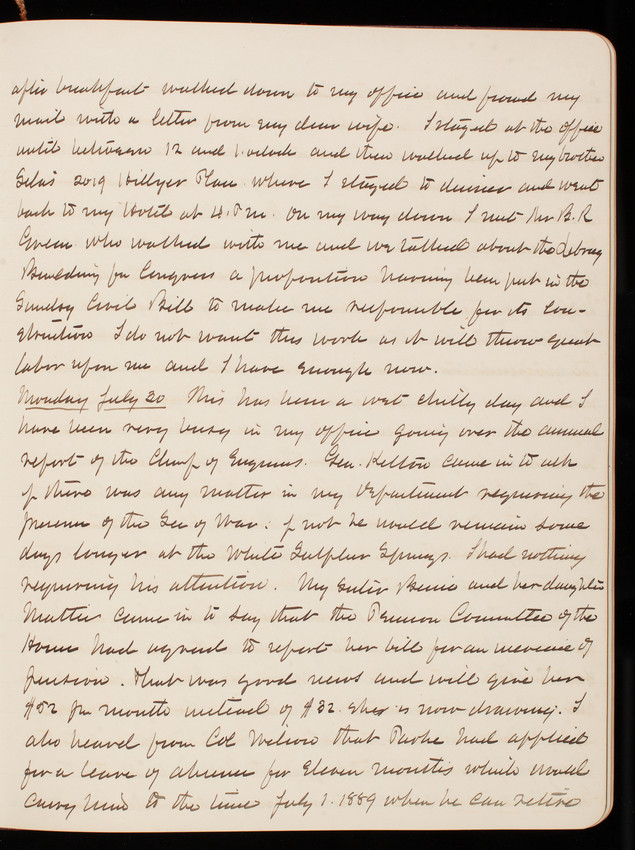 after breakfast walked down to my office and found my
mail with a letter from my dear wife. I stayed at the office
until between 12 and 1 oclock and then walked up to my brother
2019 Hillyer Place where I stayed to dinner and went
back to my Hotel at 4. P.m. On my way down I met Mr B. R
Green who walked with me and we talked about the Library
Building for Congress a proposition having been put in the
Sundry Civil Bill to make me responsible for its con-
struction I do not want this work as it will throw great
labor upon me and I have enough now.
Monday July 20 This has been a wet chilly day and I
have been very busy in my office going over the annual
report of the Chief of Engineers. Gen. Kelton came in to ask
if there was any matter in my Department requiring the
presence of the Sec of War: if not he would remain some
days longer at the White Sulphur Springs. I had nothing
requiring his attention. My sister and her daughter
Mattie came in to say that the Pension Committee of the
House had agreed to report her bill for an increase of
pension. That was good news and will give her
$52 per month instead of $32. she is now drawing. I
also heard from Col Wilson that Parke had applied
for a leave of absence for Eleven months which would
carry him to the time July 1. 1889 when he can retire